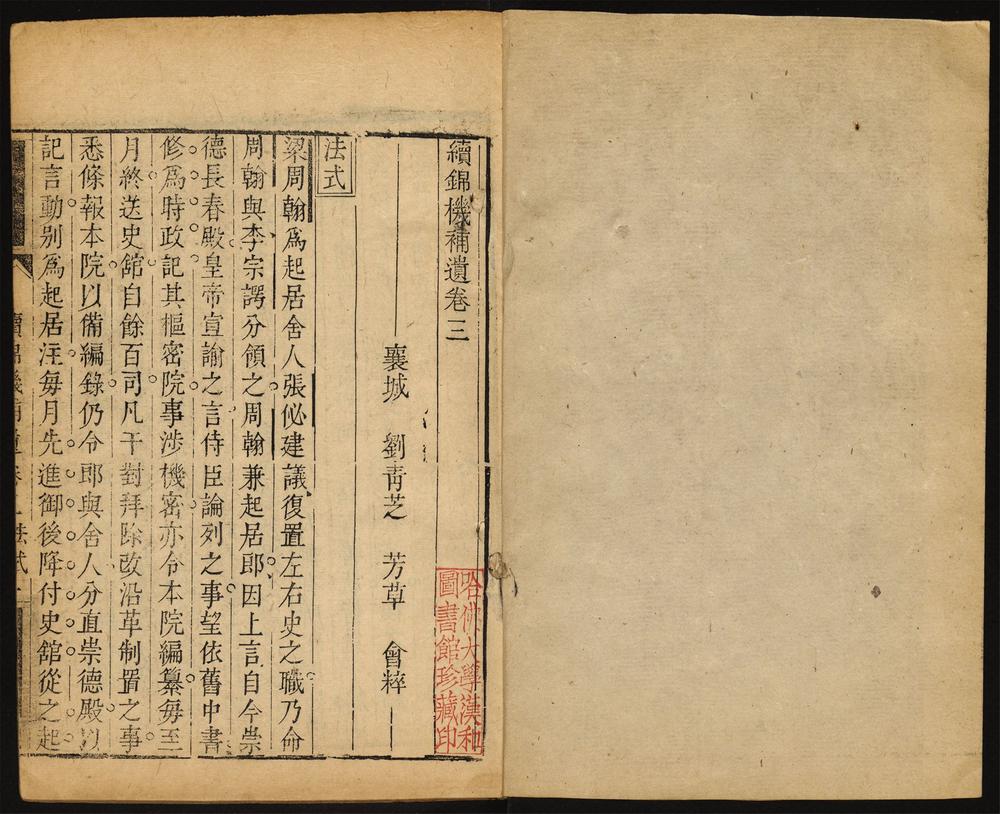 續錦機補遺卷三
哈佛大學漢和
圖書館珍藏印
襄城　劉靑芝　芳草　會粹
法式
梁周翰爲起居舍人張佖建議復置左右史之職乃命
周翰與李宗諤分領之周翰兼起居郎因上言自今崇
德長春殿皇帝宣諭之言侍臣論列之事望依舊中書
修爲時政記其樞密院事涉機密亦令本院編纂每至
月終送史舘自餘百司凡干對拜除改沿革制置之事
悉條報本院以備編錄仍令郎與舍人分直崇德殿以
記言動别爲起居注每月先進御後降付史舘從之起
續錦機補遺 卷三 法式